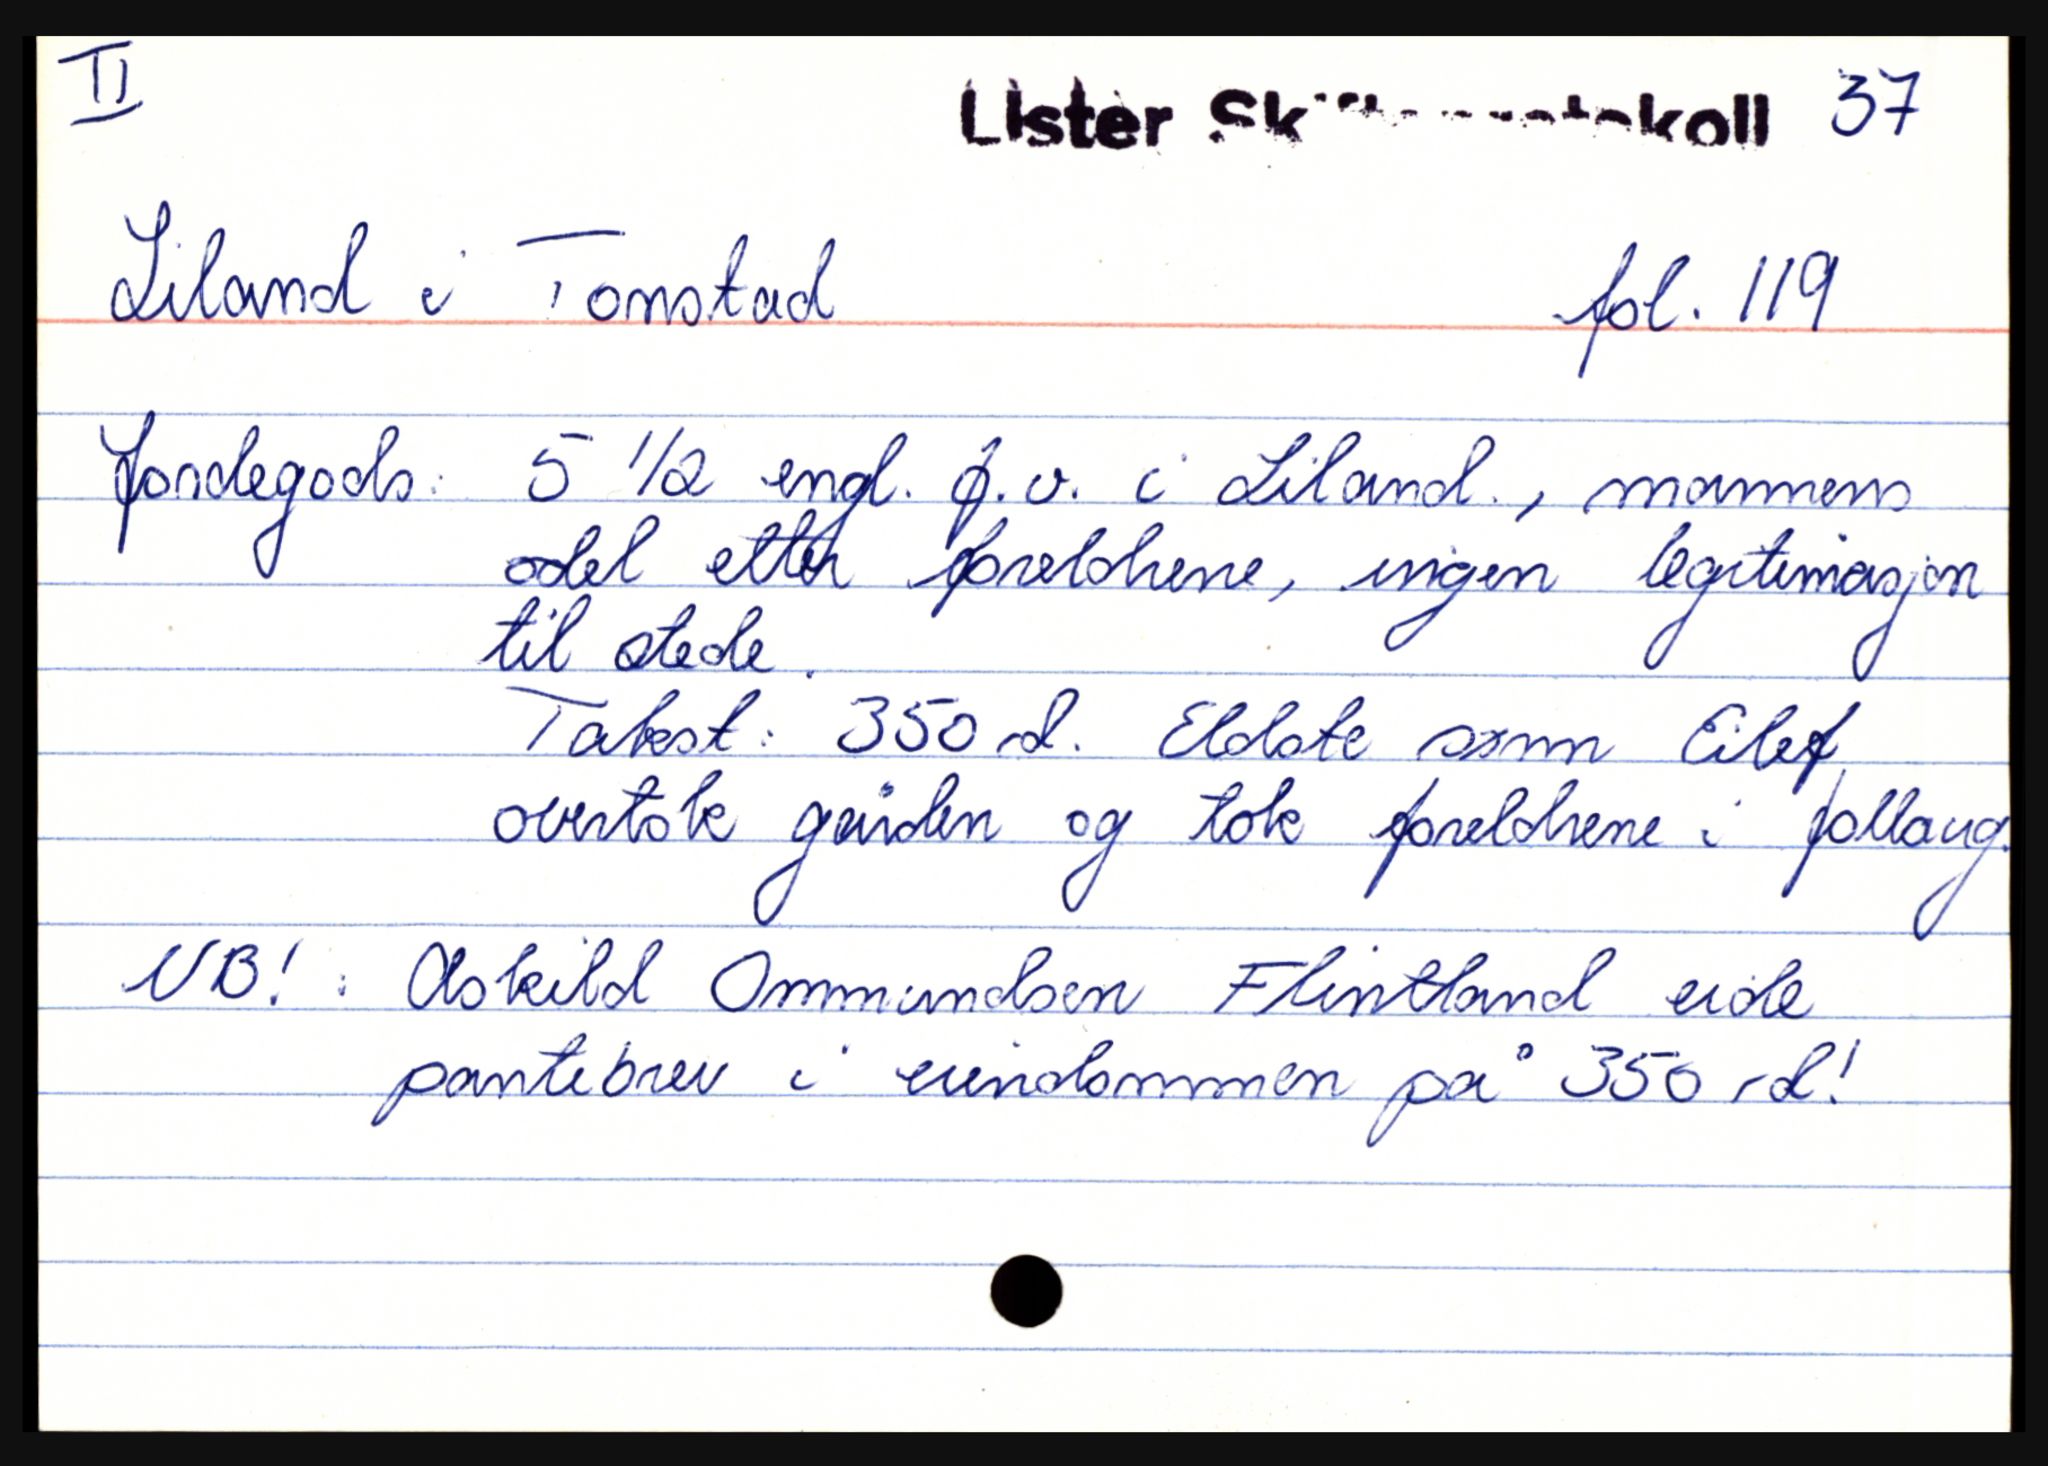 II
Lister Skifteprotokoll 37
Liland i Tonstad fol. 119
Jordegods: 5 1/2 engl. f.v. i Liland., mannens
odel etter foreldrene, ingen legitimasjon
til stede.
Takst: 350 rd. Eldste sønn Eilef
overtok gården og tok foreldrene i follaug.
NB!: Askild Ommundsen Flintland eide
pantebrev i eiendommen på 350 rd!